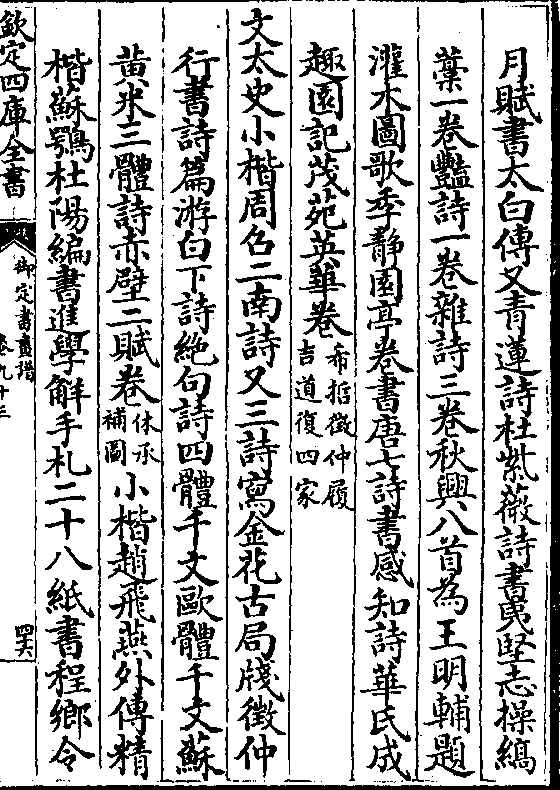 月賦書太白傳又青蓮詩杜紫薇詩書夷堅志操縞
藁一卷豔詩一卷雜詩三卷秋興八首為王明輔題
灌木圖歌季静園亭卷書唐七詩書感知詩華氏成
趣園記茂苑英華卷希哲徵仲履吉道復四家
文太史小楷周召二南詩又三詩寫金花古局牋徵仲
行書詩篇游白下詩絶句詩四體千文歐體千文蘇
黄米三體詩赤壁二賦卷休承補圖小楷趙飛燕外傳精
楷蘇鶚杜陽編書進學解手札二十八紙書程鄉令
欽定四庫全書
御定書畫譜
卷九十三
四六